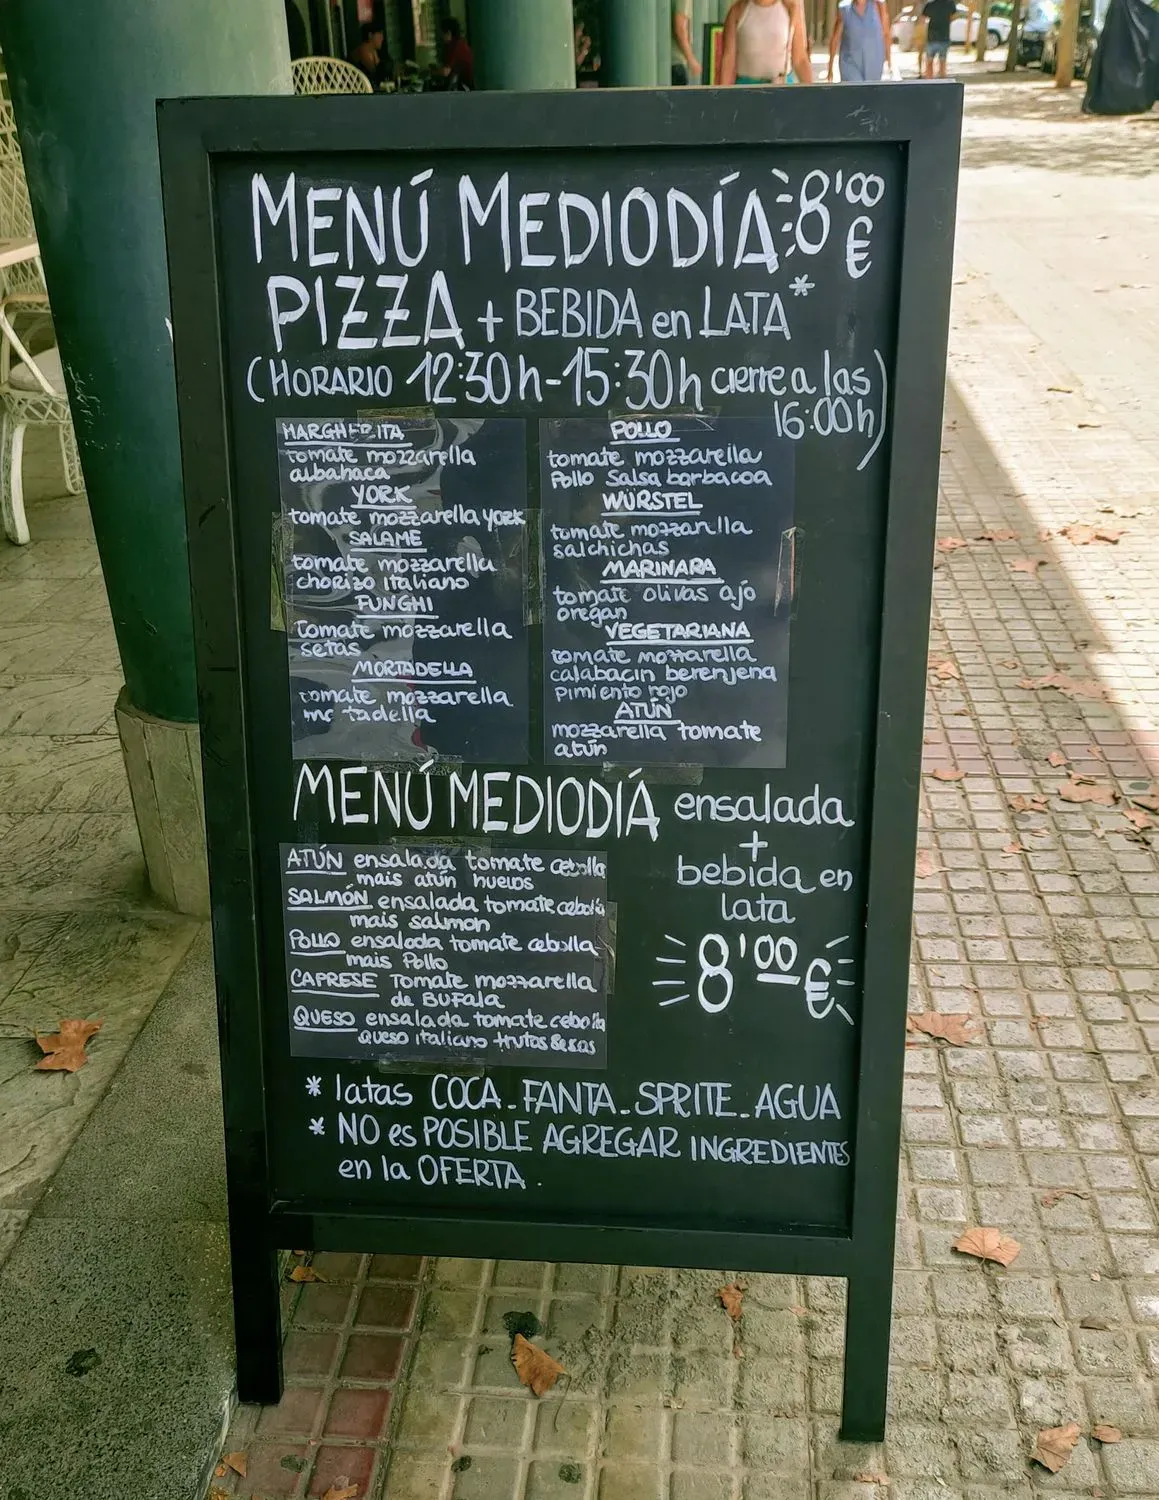 MENÚ MEDIODÍA 8'00 €
PIZZA + BEBIDA en LATA*
(HORARIO 12:30h-15:30h cierre a las 16:00h)
MARGHERITA
tomate mozzarella
albahaca
YORK
tomate mozzarella york
SALAME
tomate mozzarella
chorizo italiano
FUNGHI
tomate mozzarella
setas
MORTADELLA
tomate mozzarella
mortadella
POLLO
tomate mozzarella
Pollo Salsa barbacoa
WÜRSTEL
tomate mozzarella
salchichas
MARINARA
tomate olivas ajó
oregan
VEGETARIANA
tomate mozzarella
calabacin berenjena
pimiento rojo
ATÚN
mozzarella tomate
atún
MENÚ MEDIODÍA ensalada
+
bebida en
lata
8'00 €
ATÚN ensalada tomate cebolla
mais atún huevos
SALMÓN ensalada tomate cebolla
mais salmon
POLLO ensalada tomate cebolla
mais Pollo
CAPRESE Tomate mozzarella
de BUFala
QUESO ensalada tomate cebolla
queso italiano frutos secos
* latas COCA - FANTA - SPRITE - AGUA
* NO es POSIBLE AGREGAR INGREDIENTES
en la OFERTA.